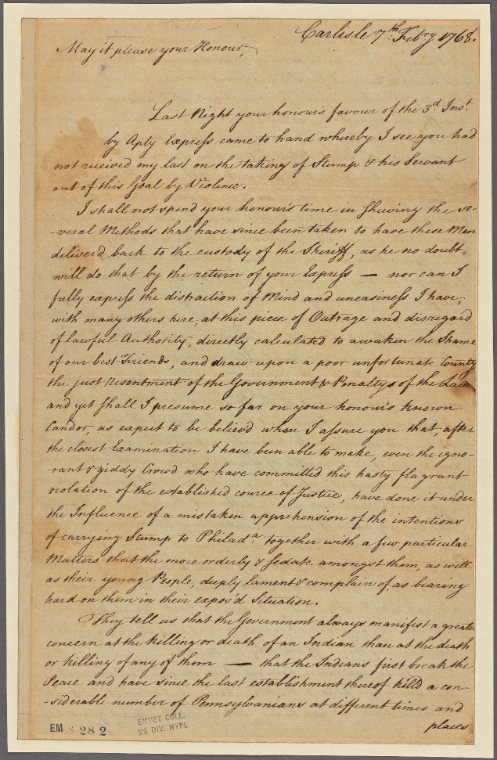 Carlisle 7th Febry 1768.
May it please your Honour,
Last Night your honours favour of the 3d Inst.
by Express came to hand whereby I see you had
not received my last on the taking of Stump & his Servant
out of this Goal by Violence.
I shall not spend your honours time in shewing the se-
-veral Methods that have since been taken to have these Men
deliverd back to the custody of the Sheriff, as he no doubt
will do that by the return of your Express — nor can I
fully express the distraction of Mind and uneasiness I have,
with many others here, at this piece of Outrage and disregard
of lawful Authority, directly calculated to awaken the Shame
of our best Friends, and draw upon a poor unfortunate County
the just resentment of the Government & Penaltys of the Law
and yet shall I presume so far on your honours known
Candor, as expect to be believd when I assure you that, after
the closest Examination I have been able to make, even the igno-
rant & giddy Crowd who have committed this hasty flagrant
violation of the established course of Justice, have done it under
the Influence of a mistaken apprehension of the intentions
of carrying Stump to Philada. together with a few particular
Matters that the more orderly & sedate amongst them, as well
as their young People, deeply lament & complain of, as bearing
hard on them in their expos'd Situation.
They tell us that the Government always manifest a greater
concern at the killing or death of an Indian than at the death
or killing of any of them — that the Indians first break the
Peace and have since the last establishment thereof killd a con-
-siderable number of Pennsylvanians at different times and
places
EM 8282
EMMET COLL.
MS DIV. NYPL